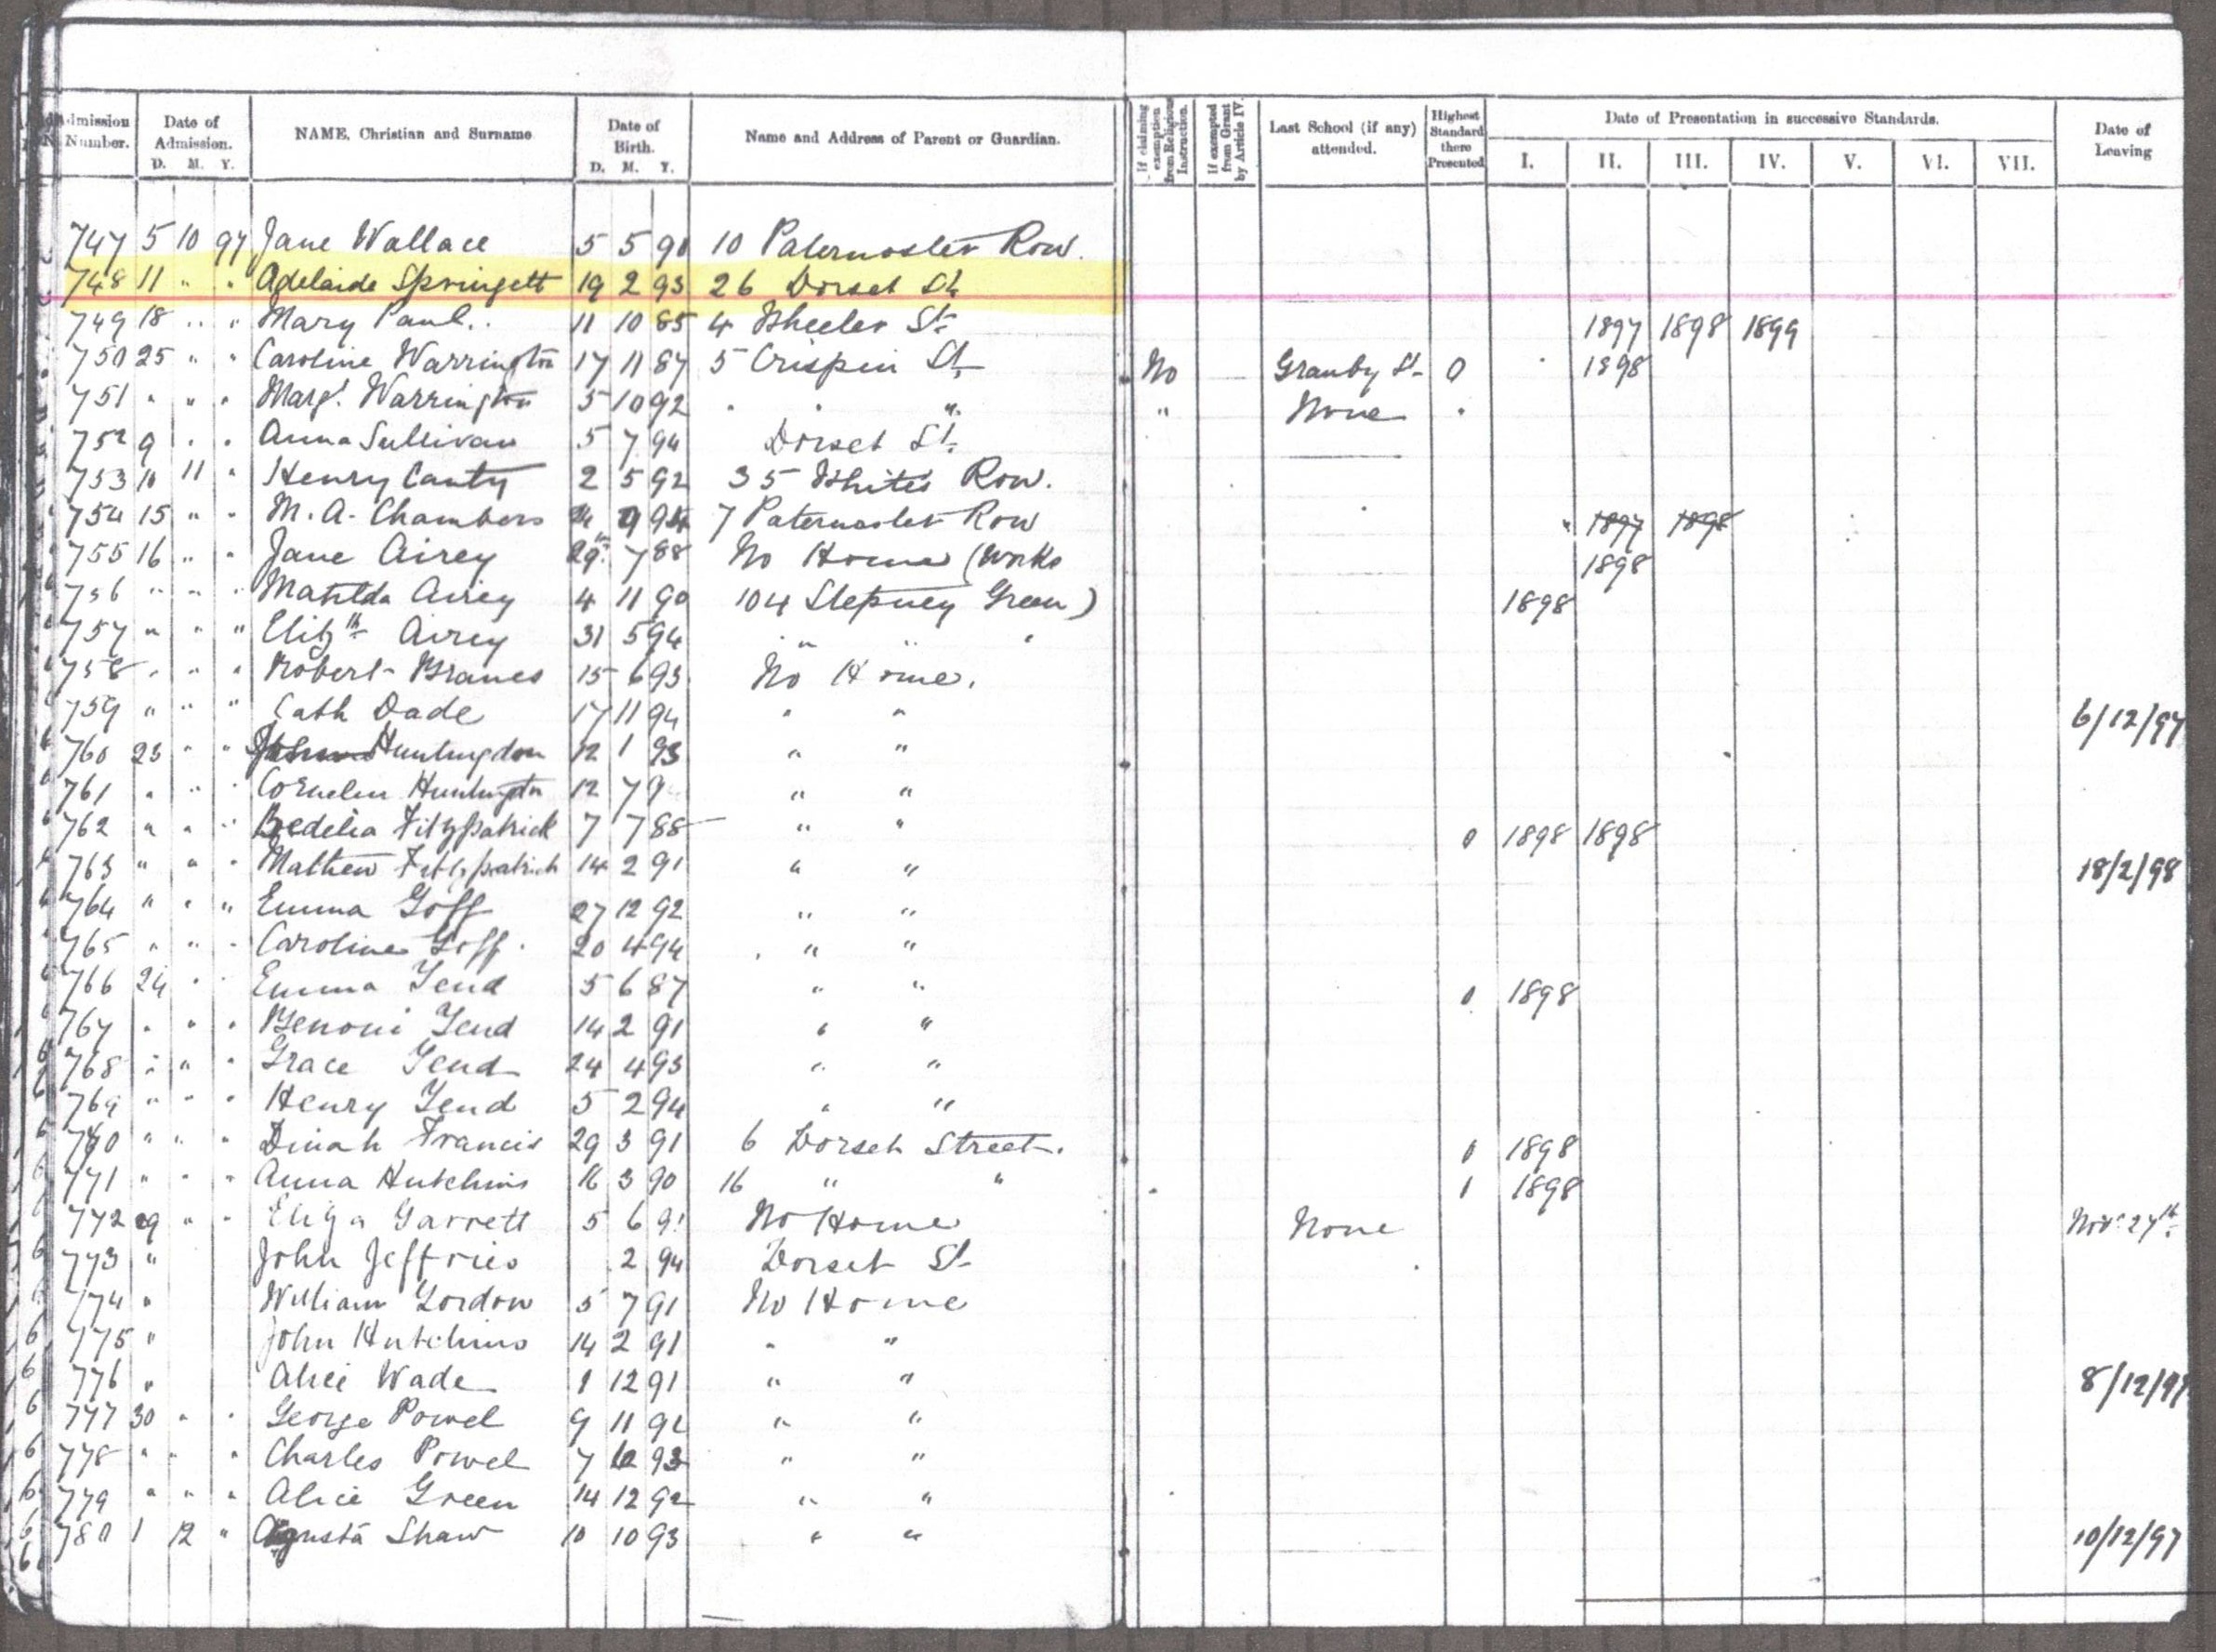 Admission Number. Date of Admission. D. M. Y. NAME, Christian and Surname Date of Birth. D. M. Y. Name and Address of Parent or Guardian. If claiming exemption from Religious Instruction. If exempted from Grant by Article IV. Last School (if any) attended. Highest Standard there Presented Date of Presentation in successive Standards. I. II. III. IV. V. VI. VII. Date of Leaving
747 5 10 97 Jane Wallace 5 5 90 10 Paternoster Row.
748 11 " " Adelaide Springett 19 2 93 26 Dorset St
749 18 " " Mary Paul.. 11 10 85 4 Wheeler St 1897 1898 1899
750 25 " " Caroline Warrington 17 11 87 5 Crispin St No Granby St 0 1898
751 " " " Margt. Warrington 5 10 92 " " " " None "
752 9 " " Anna Sullivan 5 7 94 Dorset St.
753 10 11 " Henry Canty 2 5 92 35 Whites Row.
754 15 " " M. A. Chambers 9 7 Paternoster Row 1897 1898
755 16 " " Jane Airey 29 7 88 No Home (Works 1898
756 " " " Matilda Airey 4 11 90 104 Stepney Green) 1898
757 " " " Elizth Airey 31 5 94 " " "
758 " " " Robert Branes 15 6 93 No Home.
759 " " " Cath Dade 17 11 94 " " 6/12/97
760 23 " " Huntingdon 12 1 93 " "
761 " " " Cornelius Huntingdon 12 7 9 " "
762 " " " Bedelia Fitzpatrick 7 7 88 " " 0 1898 1898
763 " " " Mathew Fitzpatrick 14 2 91 " " 18/2/98
764 " " " Emma Goff 27 12 92 " "
765 " " " Caroline Goff. 20 4 94 " "
766 24 " " Emma Yend 5 6 87 " " 0 1898
767 " " " Benoni Yend 14 2 91 " "
768 " " " Grace Yend 24 4 93 " "
769 " " " Henry Yend 5 2 94 " "
770 " " " Dinah Francis 29 3 91 6 Dorset Street. 0 1898
771 " " " Anna Hutchins 16 3 90 16 " " 1 1898
772 29 " " Eliza Garrett 5 6 91 No Home None Novr 27th.
773 " John Jeffries 2 94 Dorset St
774 " William Gordon 5 7 91 No Home
775 " John Hutchins 14 2 91 " "
776 " Alice Wade 1 12 91 " " 8/12/97
777 30 " " George Powel 9 11 92 " "
778 " " " Charles Powel 7 93 " "
779 " " " Alice Green 14 12 92 " "
780 1 12 " Agusta Shaw 10 10 93 " " 10/12/97